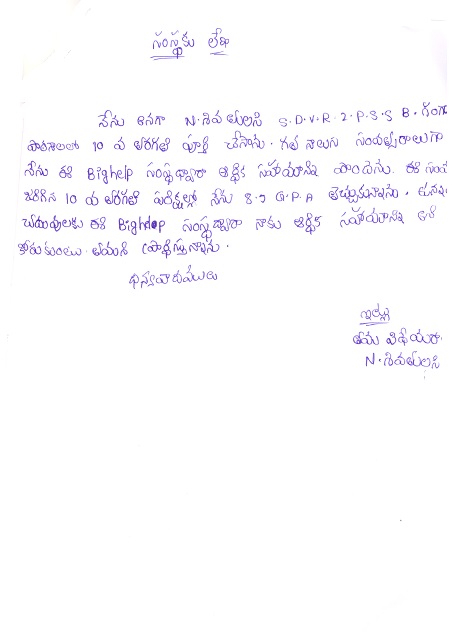 సంస్థకు లేఖ
నేను అనగా N. శివ తులసి S.D.V.R.Z.P.S.S B. గంగ
పాఠశాలలో 10 వ తరగతి పూర్తి చేసాను. గత నాలుగు సంవత్సరాలుగా
నేను ఈ Bighelp సంస్థ ద్వారా ఆర్థిక సహాయాన్ని పొందాను. ఈ సంవ
జరిగిన 10 వ తరగతి పరీక్షల్లో నేను G.P.A తెచ్చుకున్నాను. ఉన్నత
చదువులకు ఈ Bighelp సంస్థ ద్వారా నాకు ఆర్థిక సహాయాన్ని
కోరుకుంటు తమరి ప్రార్థిస్తున్నాను.
ధన్యవాదములు
ఇట్లు
తమ విధేయురా
N. శివతులసి